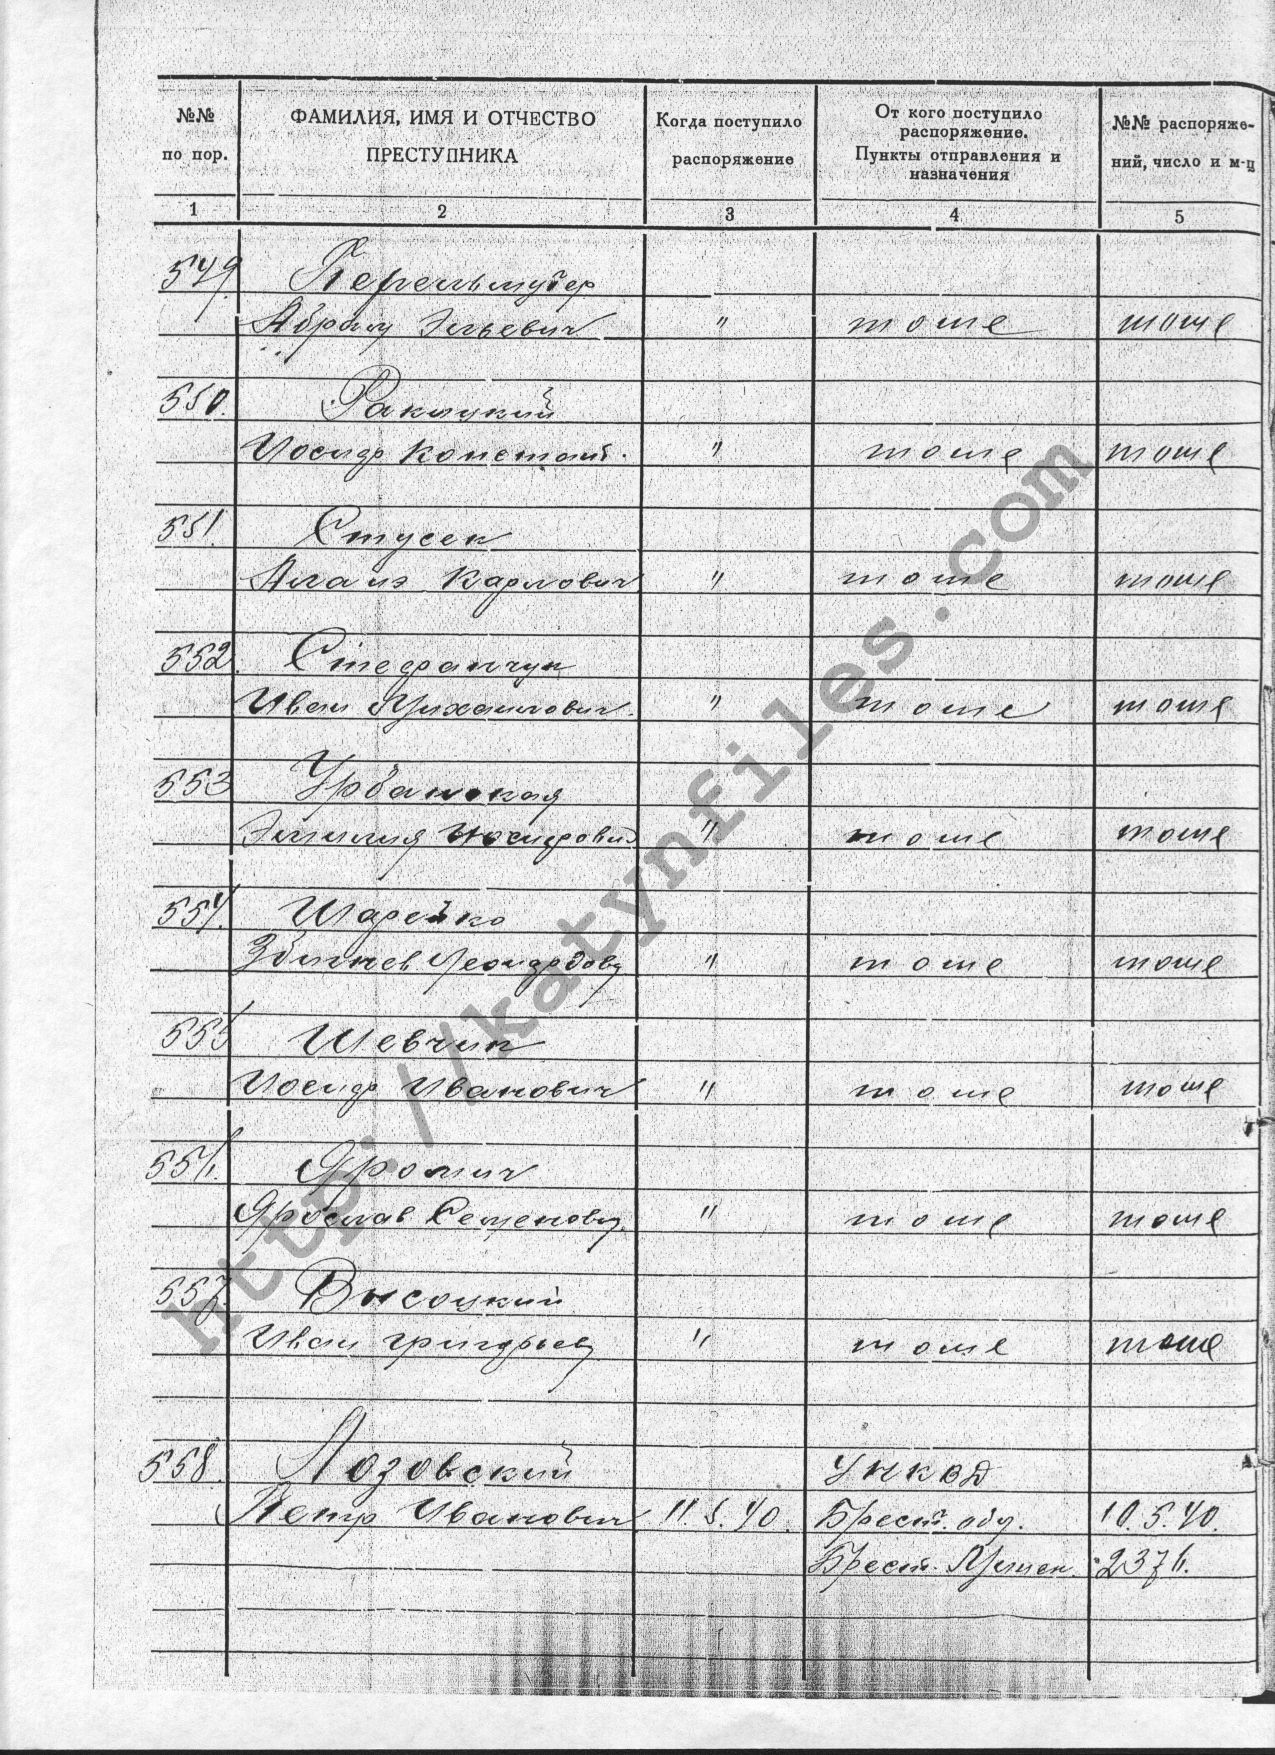 №№ по пор.
ФАМИЛИЯ, ИМЯ И ОТЧЕСТВО ПРЕСТУПНИКА
Когда поступило распоряжение
От кого поступило распоряжение. Пункты отправления и назначения
№№ распоряжений, число и м-ц
1 2 3 4 5
549 Перельмутер
Абрам Эльевич " тоже тоже
550. Ракицкий
Иосиф Констант. " тоже тоже
551. Стусек
Алоиз Карлович " тоже тоже
552. Стефанчук
Иван Михайлович. " тоже тоже
553 Урбанская
Эмилия Иосифовн " тоже тоже
554. Шарейко
Збигнев " тоже тоже
555 Шевчик
Иосиф Иванович " тоже тоже
556. Яромич
Ярослав Семенович " тоже тоже
557. Высоцкий
Иван Григорьев " тоже тоже
558. Лозовский УНКВД
Петр Иванович 11.5.40. Брест. обл. 10.5.40.
Брест. Минск. 2376.
http://katynfiles.com